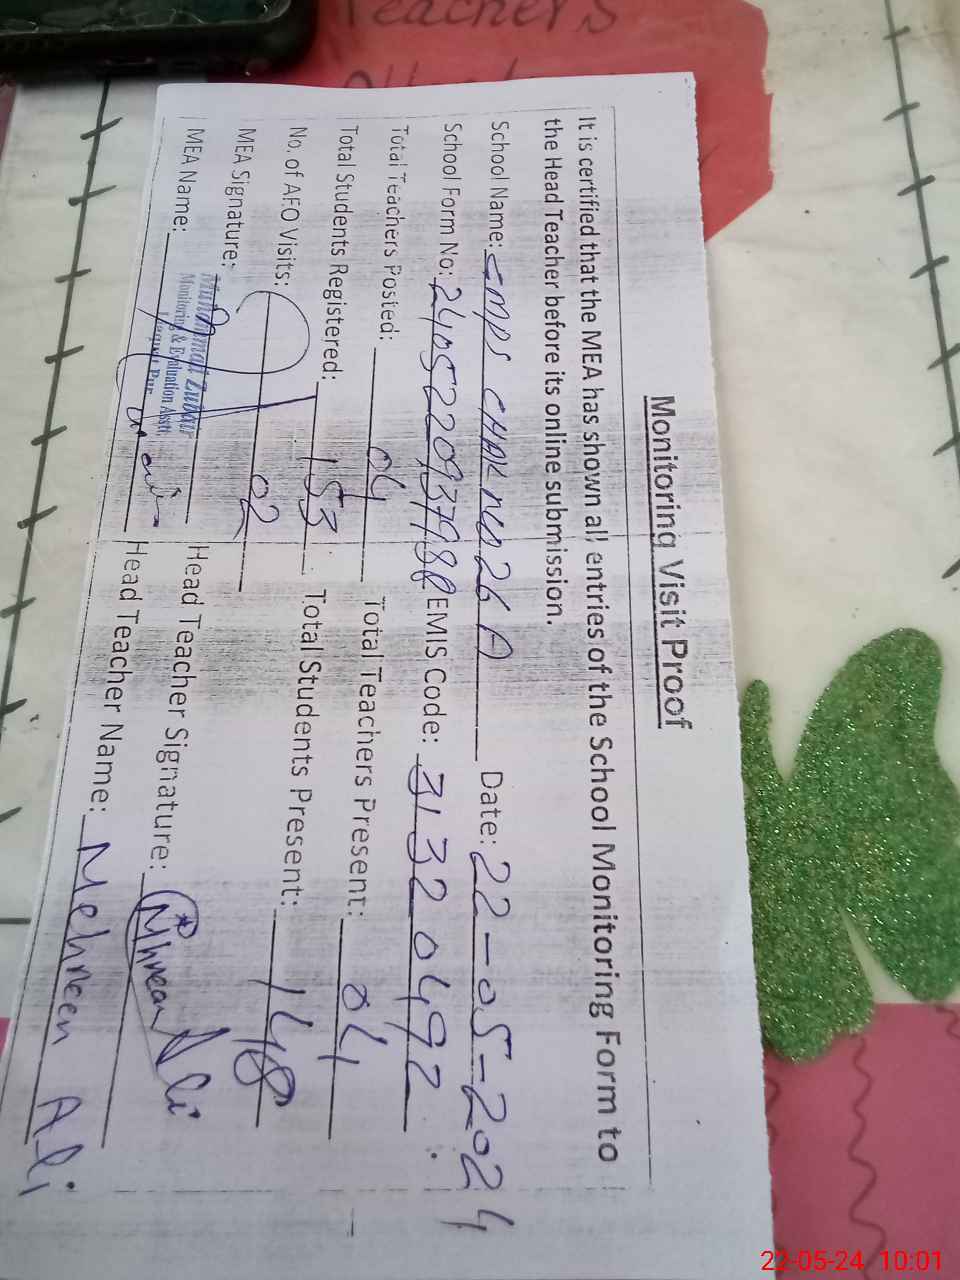 Teachers
Monitoring Visit Proof
It is certified that the MEA has shown all entries of the School Monitoring Form to
the Head Teacher before its online submission.
School Name: GMPS CHAK NO 26 A Date: 22-05-2024
School Form No: 2405220937988 EMIS Code: 31320492
Total Teachers Posted: 04 Total Teachers Present: 04
Total Students Registered: 153 Total Students Present: 148
No. of AEO Visits: 02
MEA Signature: Head Teacher Signature: Mhreen Ali
Muhammad Zubair
Monitoring & Evaluation Asstt.
Liaquat Pur
MEA Name: Head Teacher Name: Mehreen Ali
22-05-24 10:01